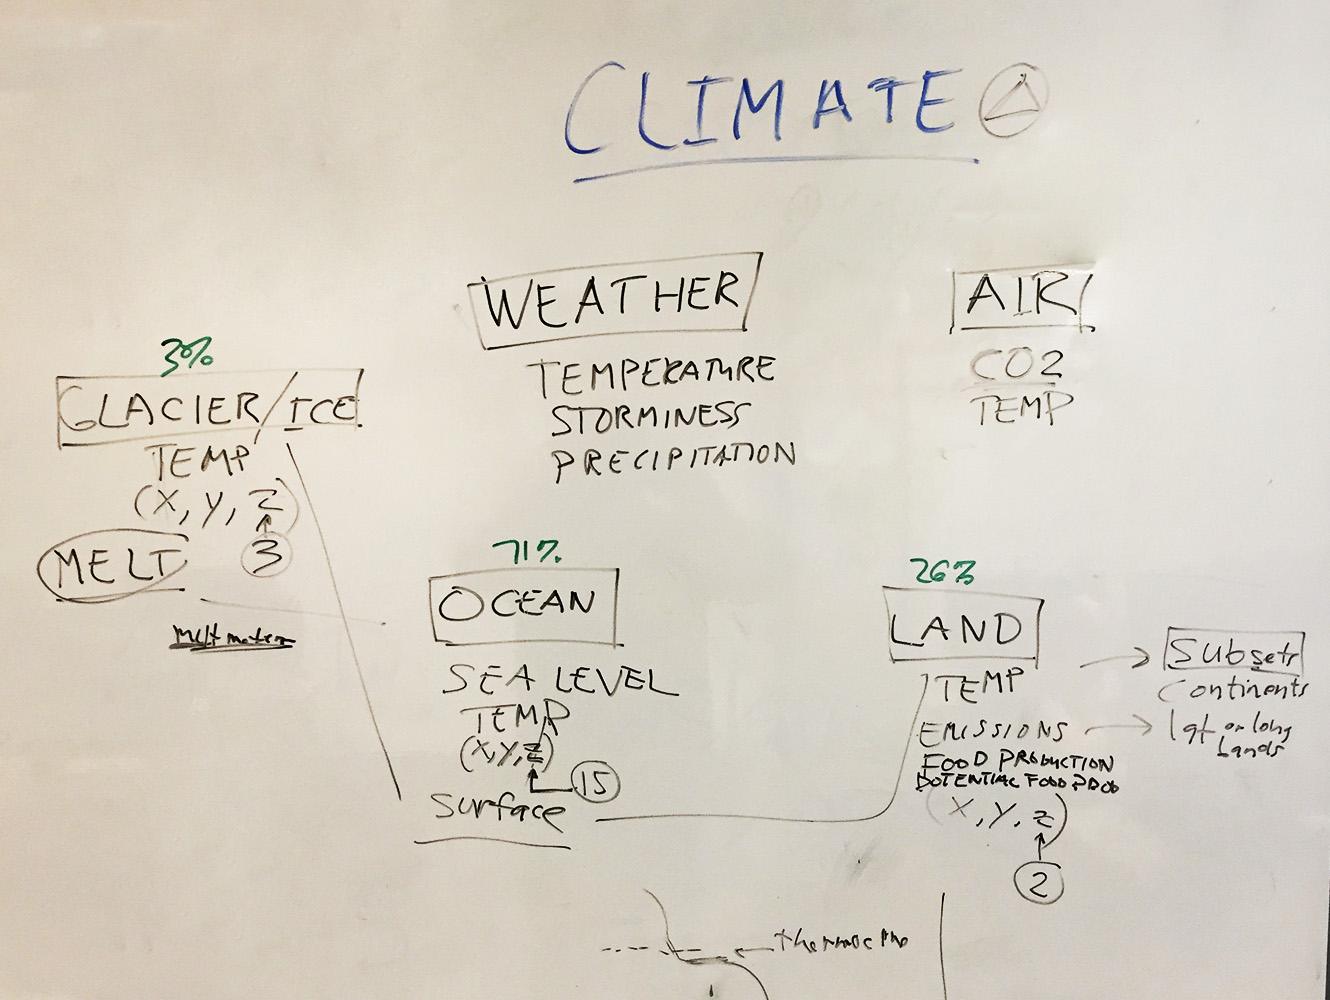 CLIMATE
WEATHER
TEMPERATURE
STORMINESS
PRECIPITATION
AIR
CO2
TEMP
3%
GLACIER/ICE
TEMP
(X, Y, Z)
3
MELT
Melt
71%
OCEAN
SEA LEVEL
TEMP
(X,Y,Z)
15
Surface
26%
LAND
TEMP
EMISSIONS
FOOD PRODUCTION
POTENTIAL FOOD PROD
(X, Y, Z)
2
Subsets
Continents
or long
Lands
thermocline